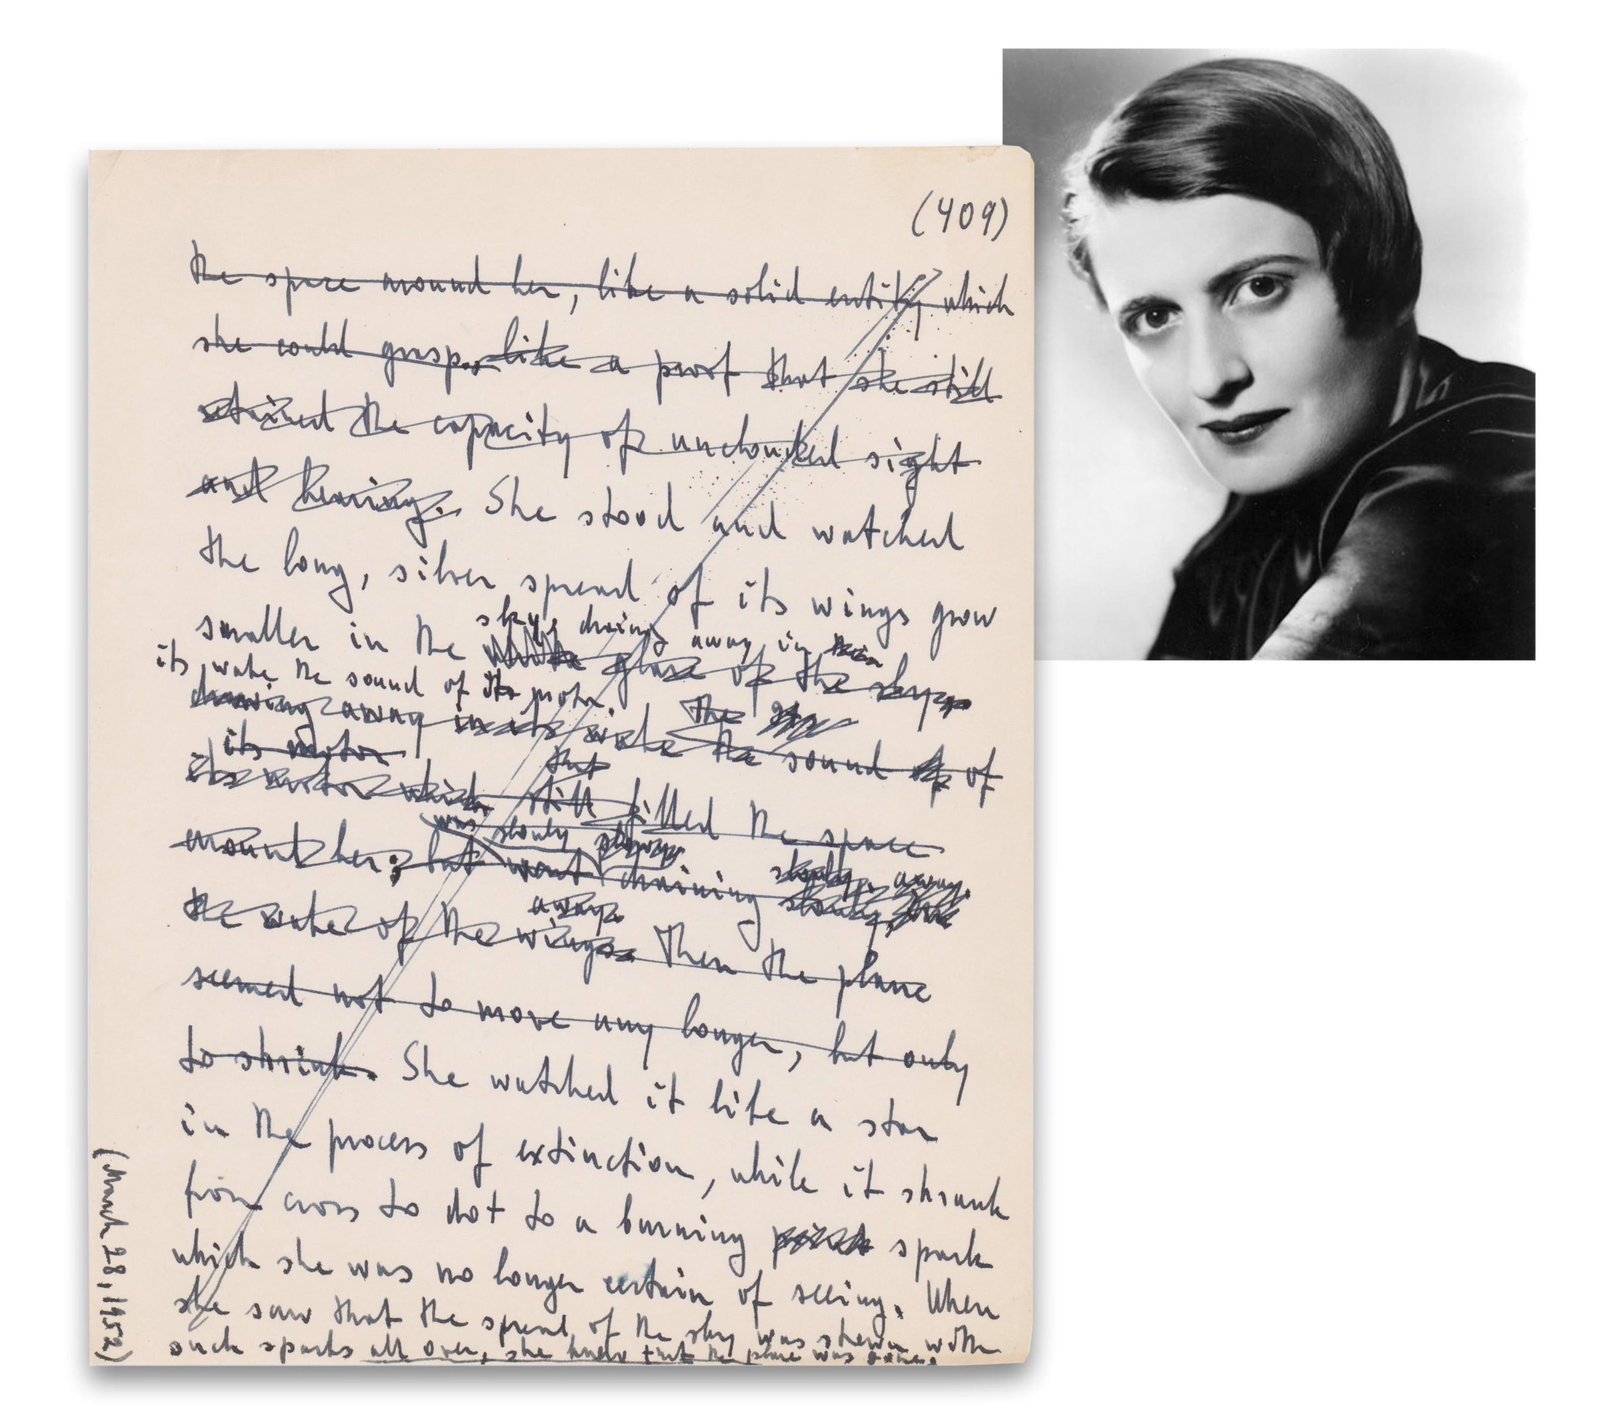 (409)
the space around her, like a solid entity which
she could grasp, like a proof that she still
retained the capacity of unclouded sight
and hearing. She stood and watched
the long, silver spread of its wings grow
smaller in the sky, draining away in
white glare of the sky,
its wake the sound of its motor.
draining away in its wake the sound of
The
its motor
its motor which still filled the space
but
around her; but went draining
was slowly
slowly away.
the wake of the wings. Then the plane
away.
seemed not to move any longer, but only
to shrink. She watched it like a star
in the process of extinction, while it shrank
from cross to dot to a burning spark
which she was no longer certain of seeing. When
she saw that the spread of the sky was strewn with
such sparks all over, she knew that the plane was gone.
(March 28, 1952)